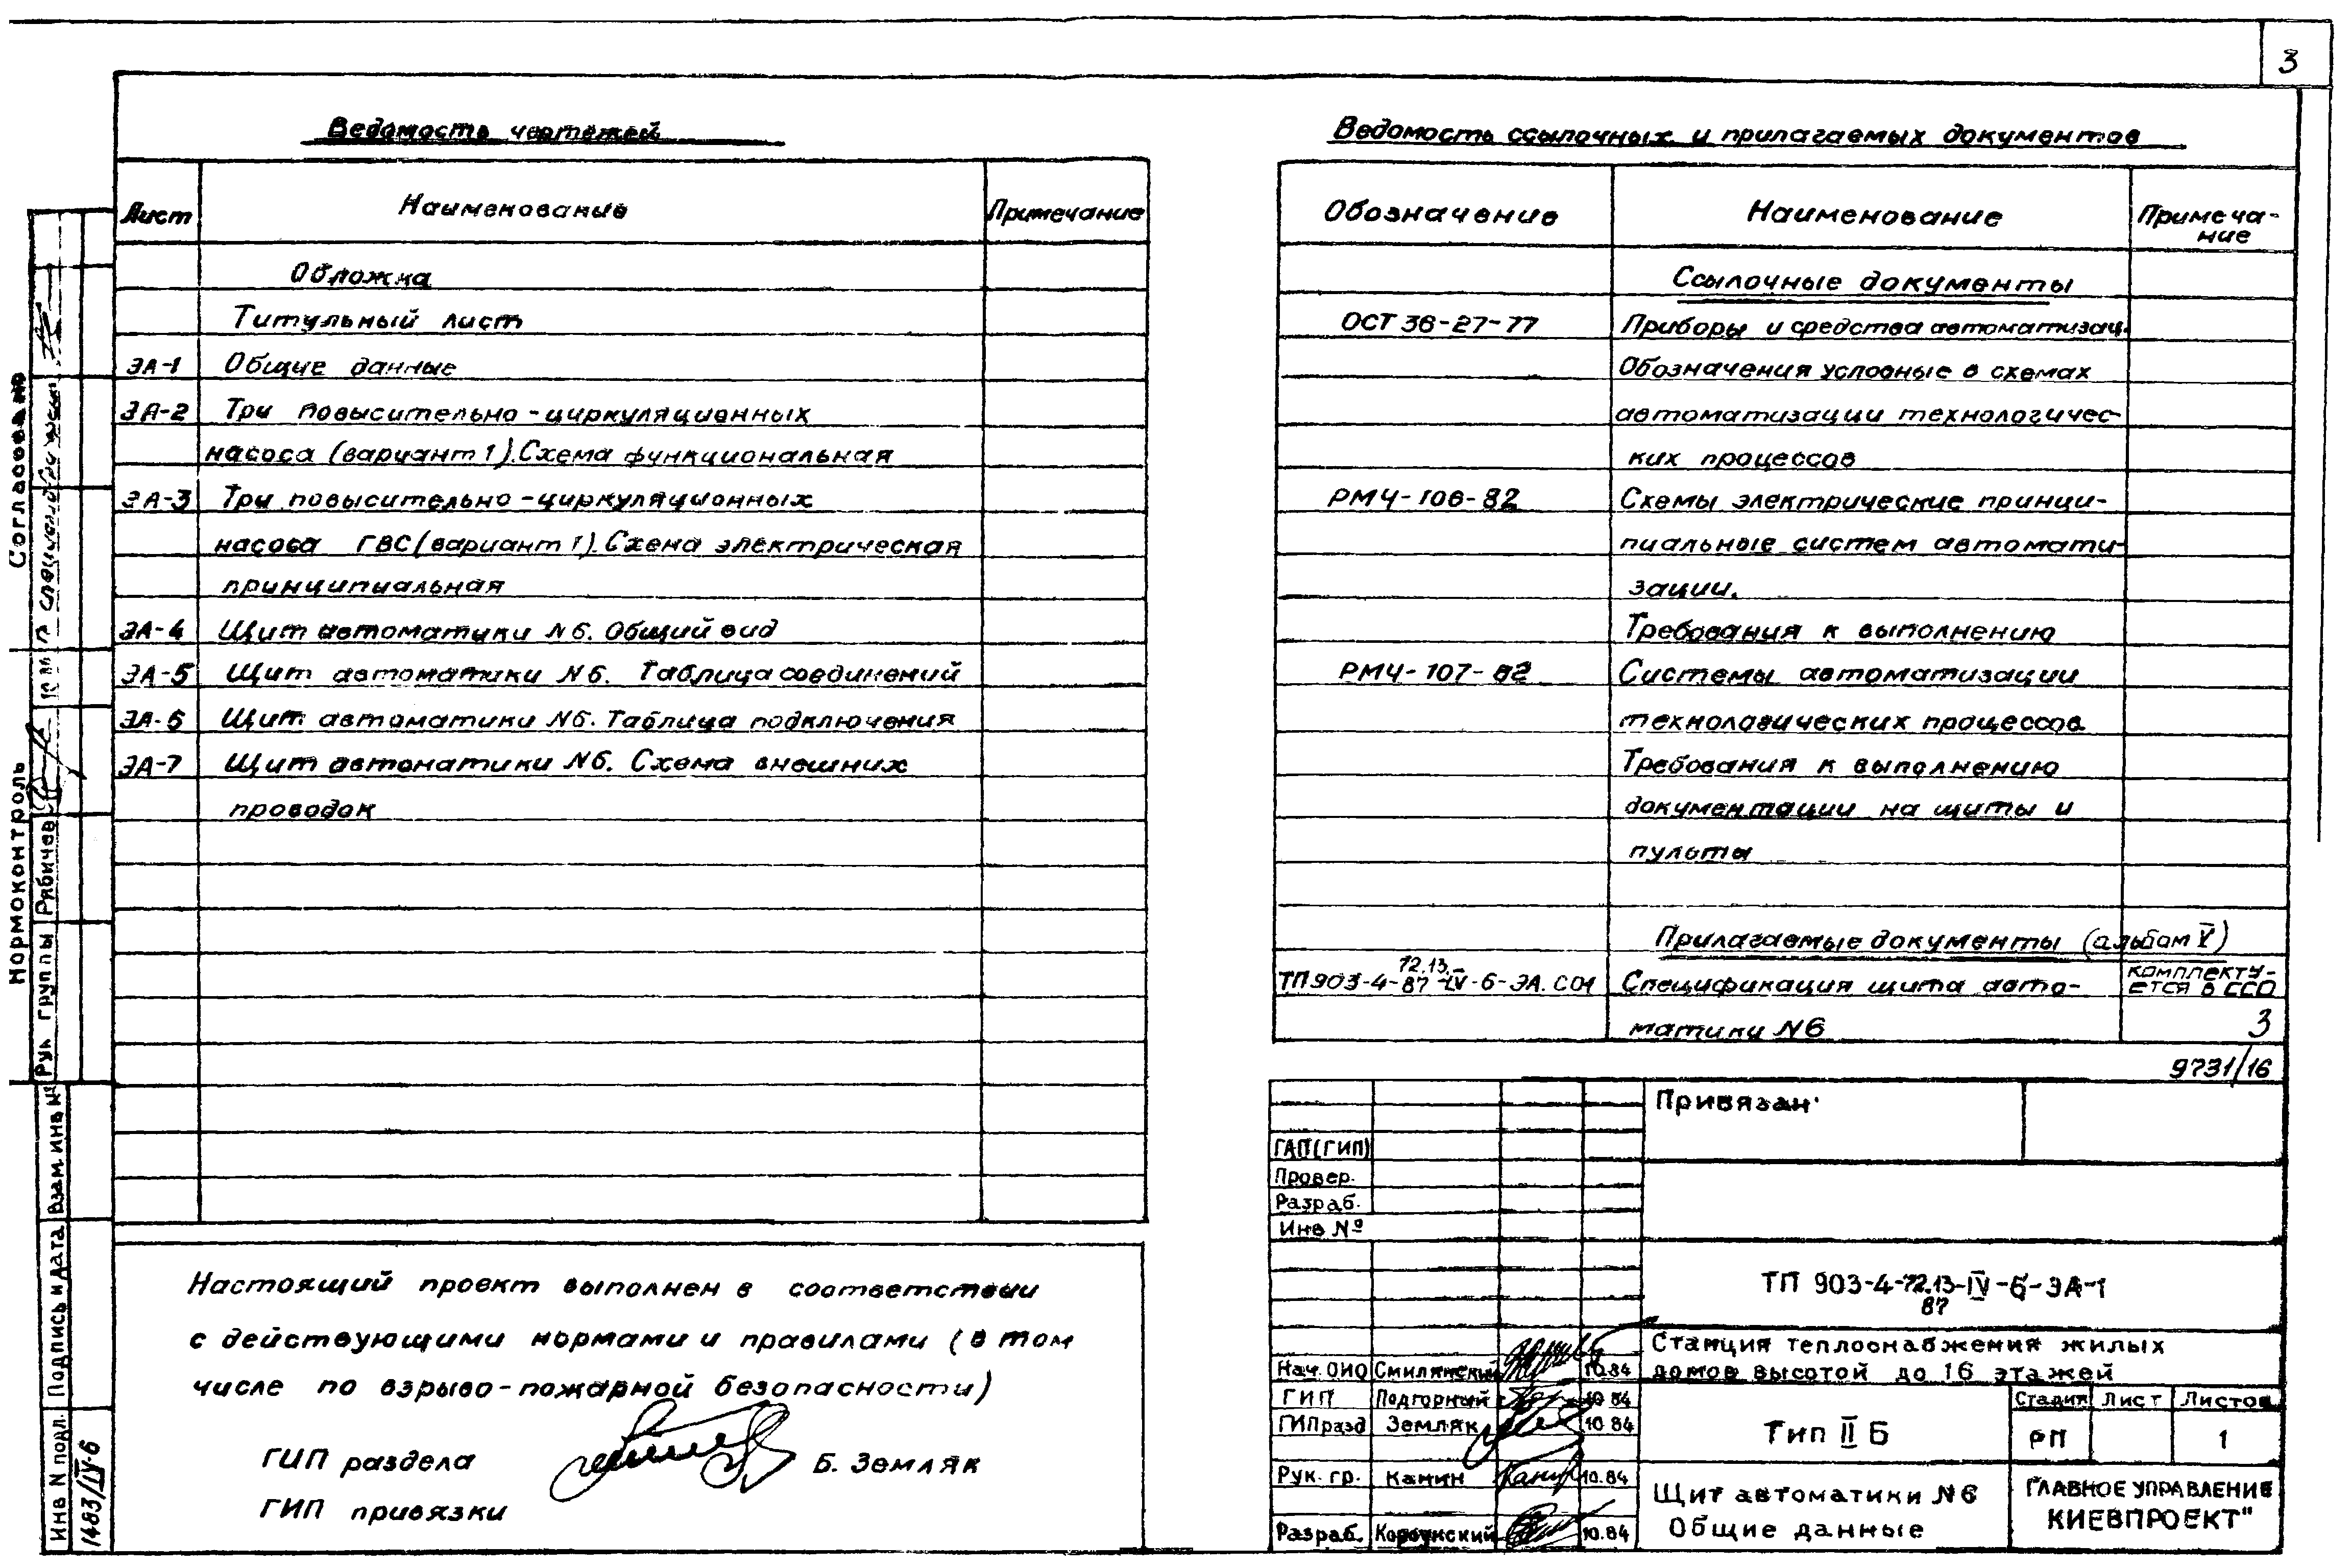 3
Ведомость чертежей
Лист Наименование Примечание
Обложка
Титульный лист
ЭА-1 Общие данные
ЭА-2 Три повысительно-циркуляционных
насоса (вариант 1). Схема функциональная
ЭА-3 Три повысительно-циркуляционных
насоса ГВС (вариант 1). Схема электрическая
принципиальная
ЭА-4 Щит автоматики N6. Общий вид
ЭА-5 Щит автоматики N6. Таблица соединений
ЭА-6 Щит автоматики N6. Таблица подключения
ЭА-7 Щит автоматики N6. Схема внешних
проводок
Настоящий проект выполнен в соответствии
с действующими нормами и правилами (в том
числе по взрыво-пожарной безопасности)
ГИП раздела Б. Земляк
ГИП привязки
Ведомость ссылочных и прилагаемых документов
Обозначение Наименование Примеча-
ние
Ссылочные документы
ОСТ 36-27-77 Приборы и средства автоматизац.
Обозначения условные в схемах
автоматизации технологичес-
ких процессов
РМ4-106-82 Схемы электрические принци-
пиальные систем автомати-
зации.
Требования к выполнению
РМ4-107-82 Системы автоматизации
технологических процессов
Требования к выполнению
документации на щиты и
пульты
Прилагаемые документы (альбом V)
ТП903-4-72.13.87-IV-6-ЭА.СО1 Спецификация щита авто- комплекту-
ется в ССО
матики N6 3
9731/16
Привязан
ГАП(ГИП)
Провер.
Разраб.
Инв №
ТП 903-4-72.13-IV-6-ЭА-1
87
Станция теплоснабжения жилых
домов высотой до 16 этажей
Нач. ОИО Смилянский 10.84
ГИП Подгорный 10 84
ГИПразд Земляк 10 84
Рук. гр. Канин Канин 10.84
Разраб. 10.84
Тип II Б
Стадия Лист Листов
РП 1
Щит автоматики N6
Общие данные
ГЛАВНОЕ УПРАВЛЕНИЕ
КИЕВПРОЕКТ"
Согласовано
Нормоконтроль
Рук группы Рябичев
Инв N подл. Подпись и дата Взам инв №
1483/IV-6